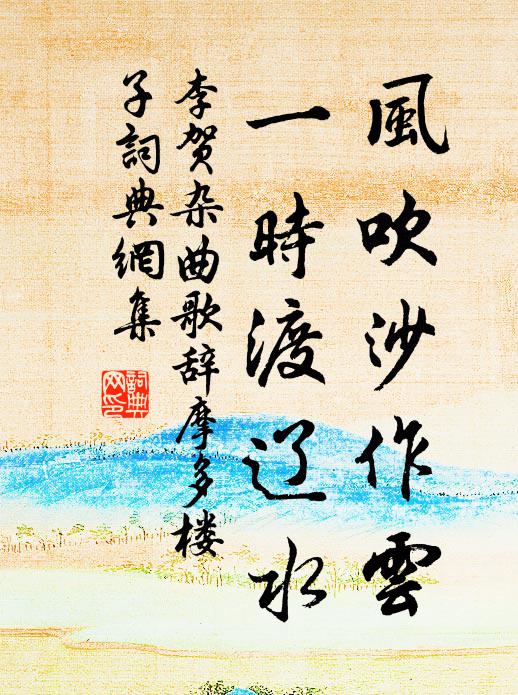 風吹沙作雲
一時渡辽水
李贺杂曲歌辞摩多楼
子詞典網集
詞典
网印